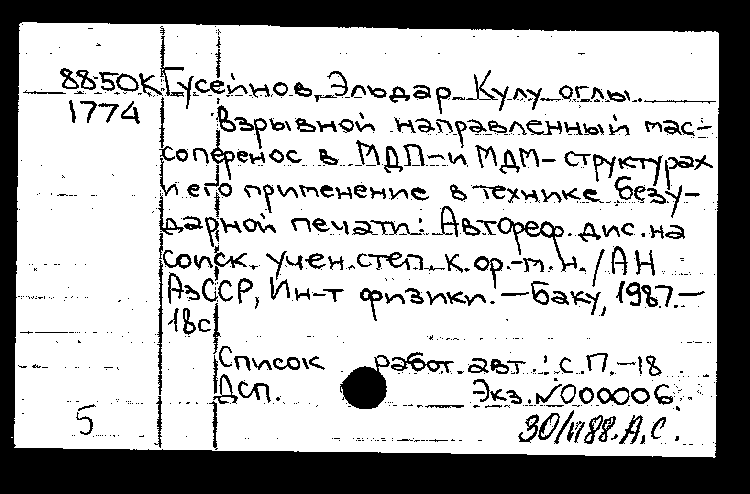 88-50К Гусейнов, Эльдар Кулу оглы.
1774 Взрывной направленный мас-
соперенос в МДП- и МДМ- структурах
и его применение в технике безу-
дарной печати: Автореф. дис. на
соиск. учен. степ. к. ф.-м. н. / АН
АзССР, Ин-т физики. — Баку, 1987. —
18с
Список работ. авт.: с. 17.-18
ДСП. Экз. №000006.
5 30/VI 88. А.С.